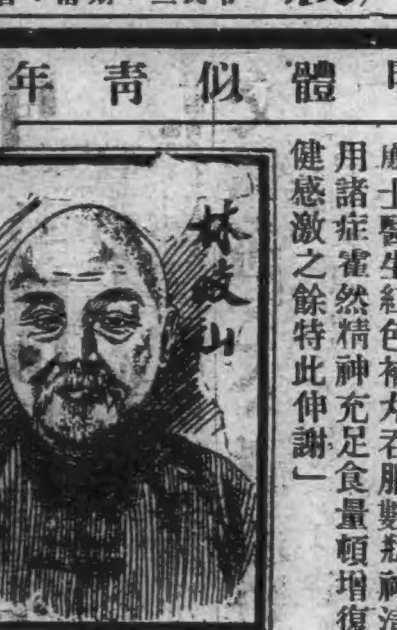 體似靑年
廉士醫生紅色補丸服數瓶
用諸症霍然精神充足食量頓增復
健感激之餘特此伸謝」
林岐山